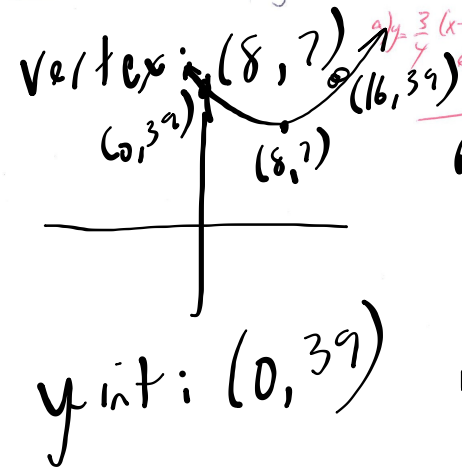 vertex: (8, 7)
a) y = 3/4 (x-
(0, 39)
(16, 39)
(8, 7)
y int: (0, 39)